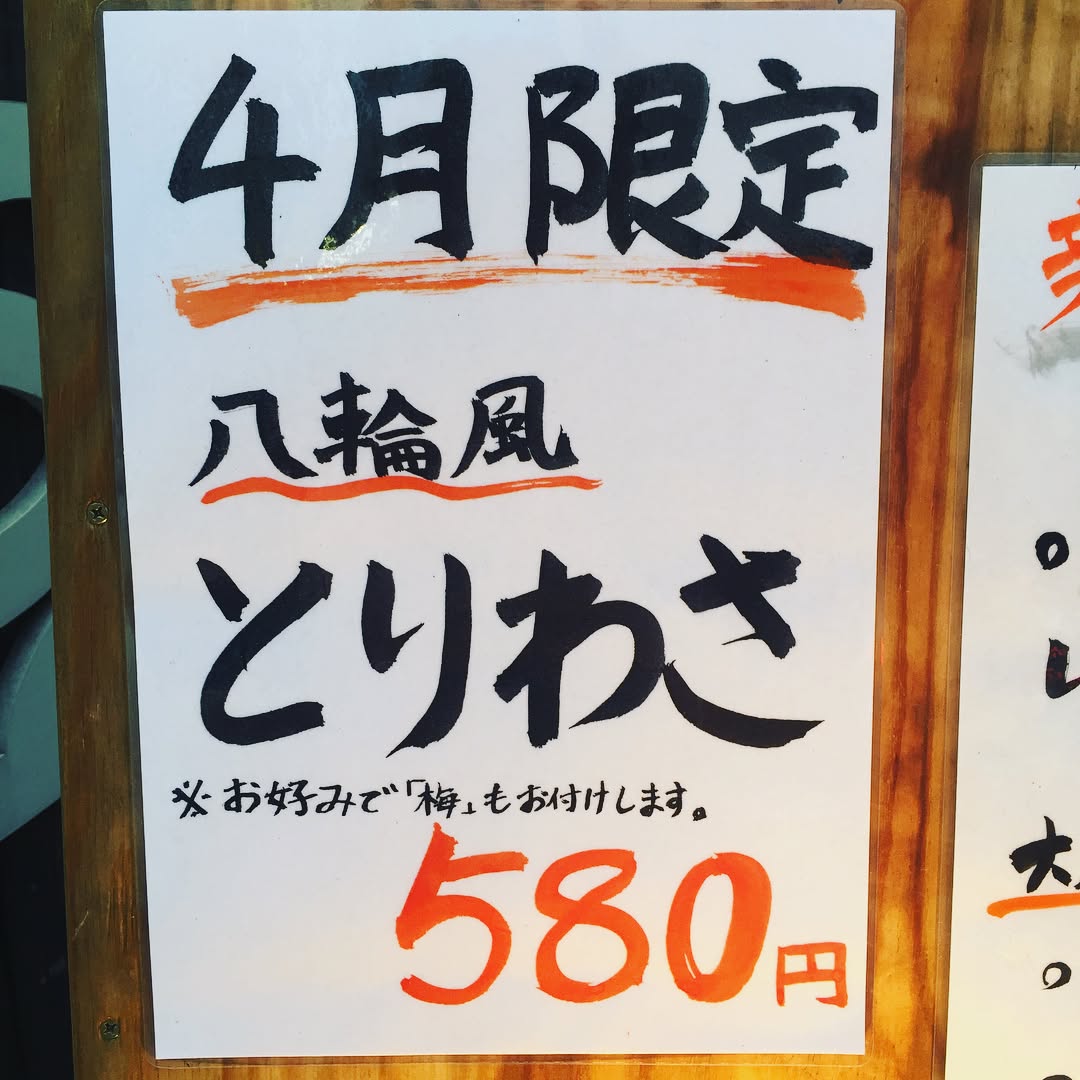 4月限定
八輪風
とりわさ
※お好みで「梅」もお付けします。
580円